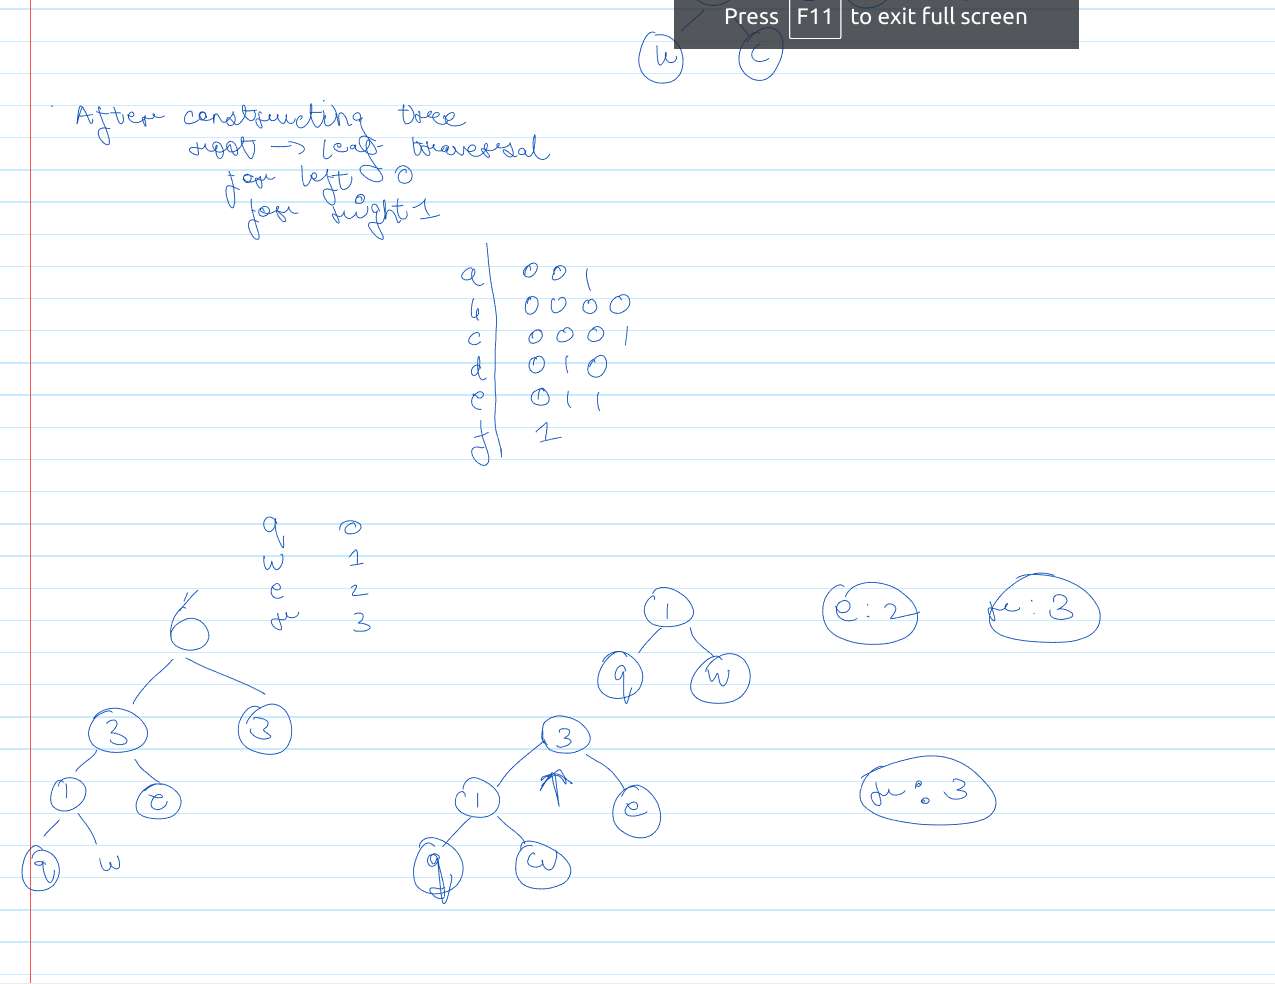 Press F11 to exit full screen
b c
After constructing tree
root → leaf traversal
for left 0
for right 1
a 0 0 1
b 0 0 0 0
c 0 0 0 1
d 0 1 0
e 0 1 1
f 1
q 0
w 1
e 2
r 3
6
3 3
1 e
q w
1 e:2 r:3
q w
3
1 e r:3
q w